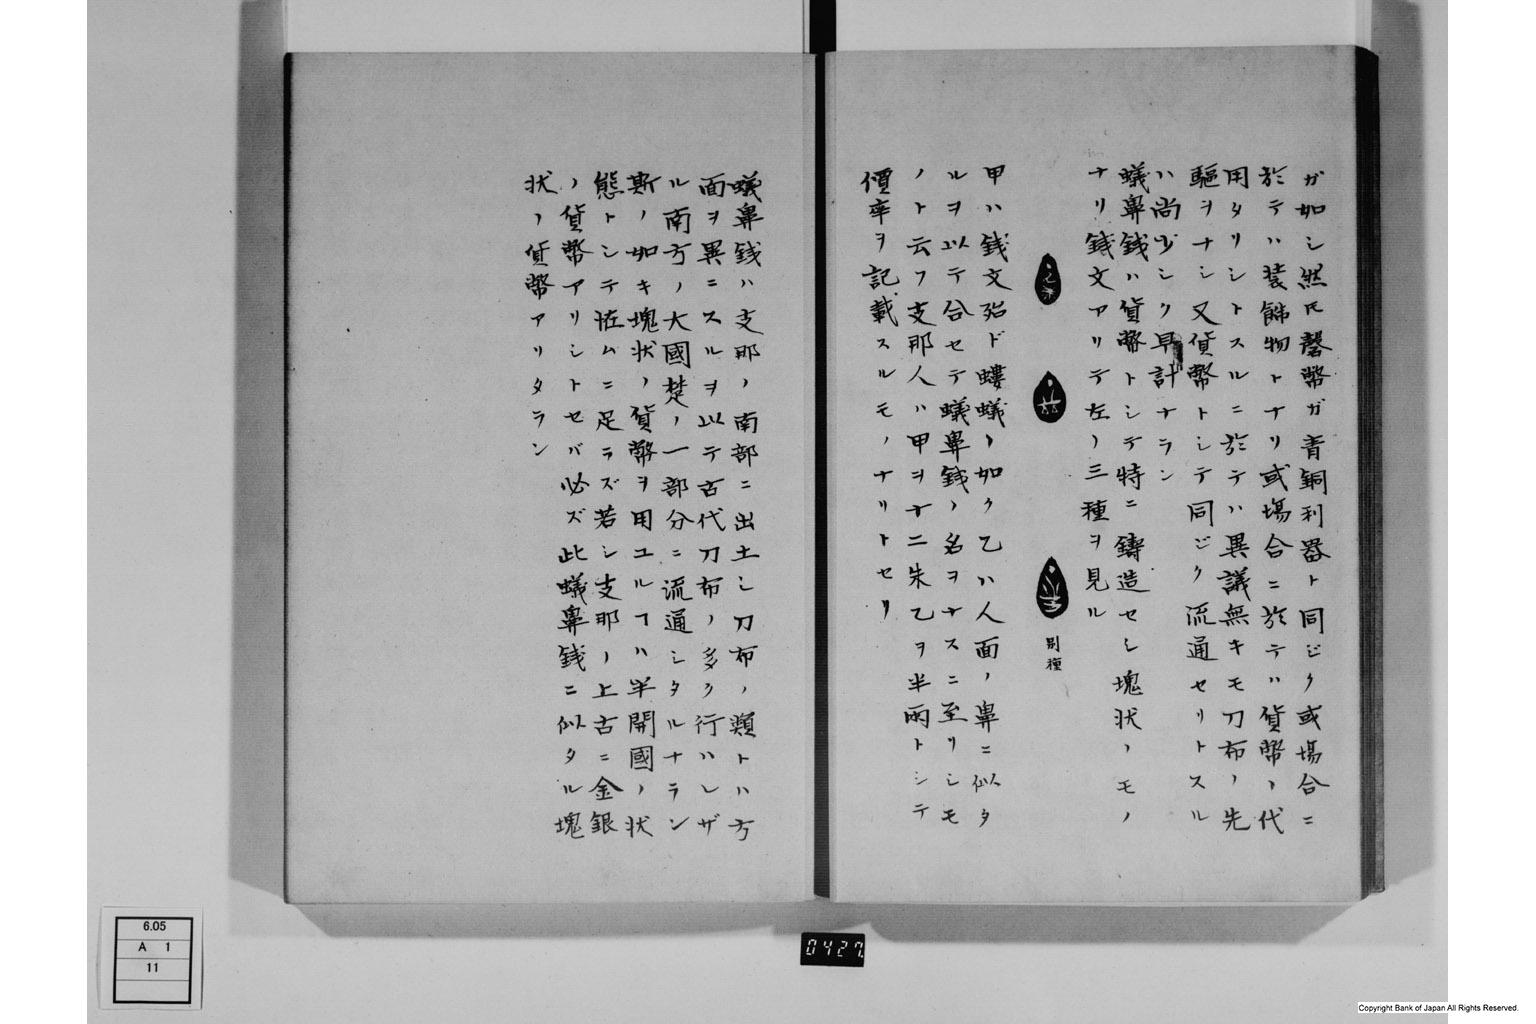 ガ如シ然𪜈磬幣ガ青銅利器ト同ジク或場合ニ
於テハ装飾物トナリ或場合ニ於テハ貨幣ノ代
用タリシトスルニ於テハ異議無キモ刀布ノ先
驅ヲナシ又貨幣トシテ同ジク流通セリトスル
ハ尚少シク早計ナラン
蟻鼻銭ハ貨幣トシテ特ニ鑄造セシ塊状ノモノ
ナリ銭文アリテ左ノ三種ヲ見ル
別種
甲ハ銭文殆ド螻蟻ノ如ク乙ハ人面ノ鼻ニ似タ
ルヲ以テ合セテ蟻鼻銭ノ名ヲナスニ至リシモ
ノト云フ支那人ハ甲ヲ十二朱乙ヲ半兩トシテ
價率ヲ記載スルモノナリトセリ
蟻鼻銭ハ支那ノ南部ニ出土シ刀布ノ類トハ方
面ヲ異ニスルヲ以テ古代刀布ノ多ク行ハレザ
ル南方ノ大國楚ノ一部分ニ流通シタルナラン
斯ノ如キ塊状ノ貨幣ヲ用ユルヿハ半開國ノ状
態トシテ恠ムニ足ラズ若シ支那ノ上古ニ金銀
ノ貨幣アリシトセバ必ズ此蟻鼻銭ニ似タル塊
状ノ貨幣アリタラン
6.05
A 1
11
0427
Copyright Bank of Japan All Rights Reserved.